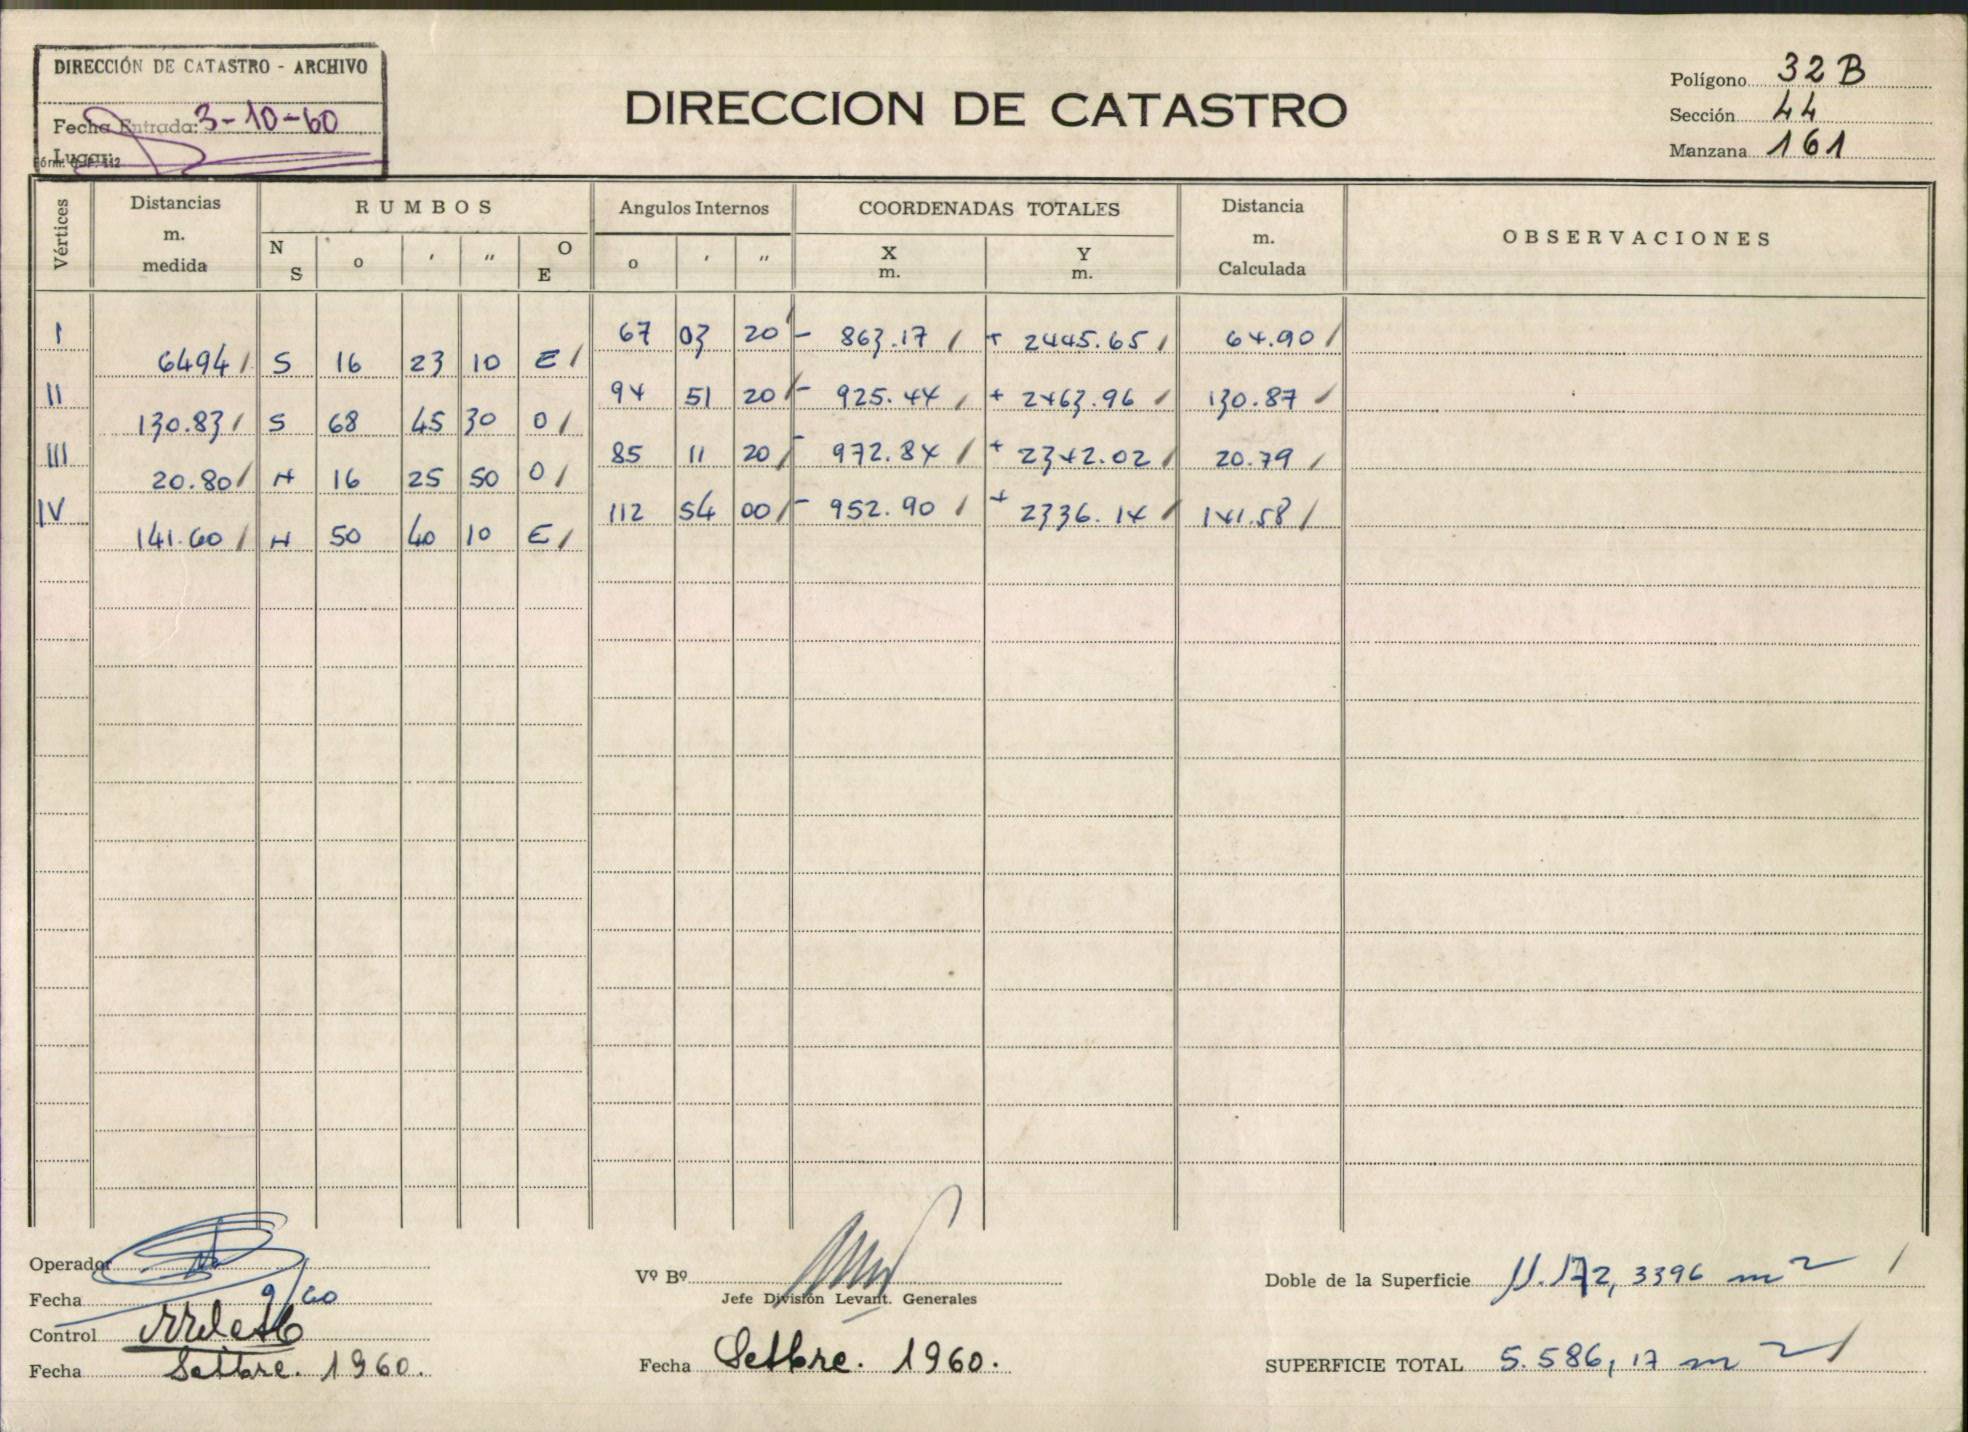 DIRECCIÓN DE CATASTRO - ARCHIVO
Fecha Entrada: 3-10-60
Lugar:
DIRECCION DE CATASTRO
Polígono 32 B
Sección 44
Manzana 161
Vértices
Distancias m. medida
RUMBOS
N S o ' " O E
Angulos Internos
o ' "
COORDENADAS TOTALES
X m. Y m.
Distancia m. Calculada
OBSERVACIONES
I 67 03 20 - 863.17 + 2445.65 64.90
6494 S 16 23 10 E
II 94 51 20 - 925.44 + 2463.96 130.87
130.83 S 68 45 30 O
III 85 11 20 - 972.84 + 2342.02 20.79
20.80 N 16 25 50 O
IV 112 54 00 - 952.90 + 2336.14 141.58
141.60 N 50 40 10 E
Operador
Fecha 9/60
Control
Fecha Setbre. 1960.
Vº Bº
Jefe División Levant. Generales
Fecha Setbre. 1960.
Doble de la Superficie 11.172,3396 m²
SUPERFICIE TOTAL 5.586,17 m²